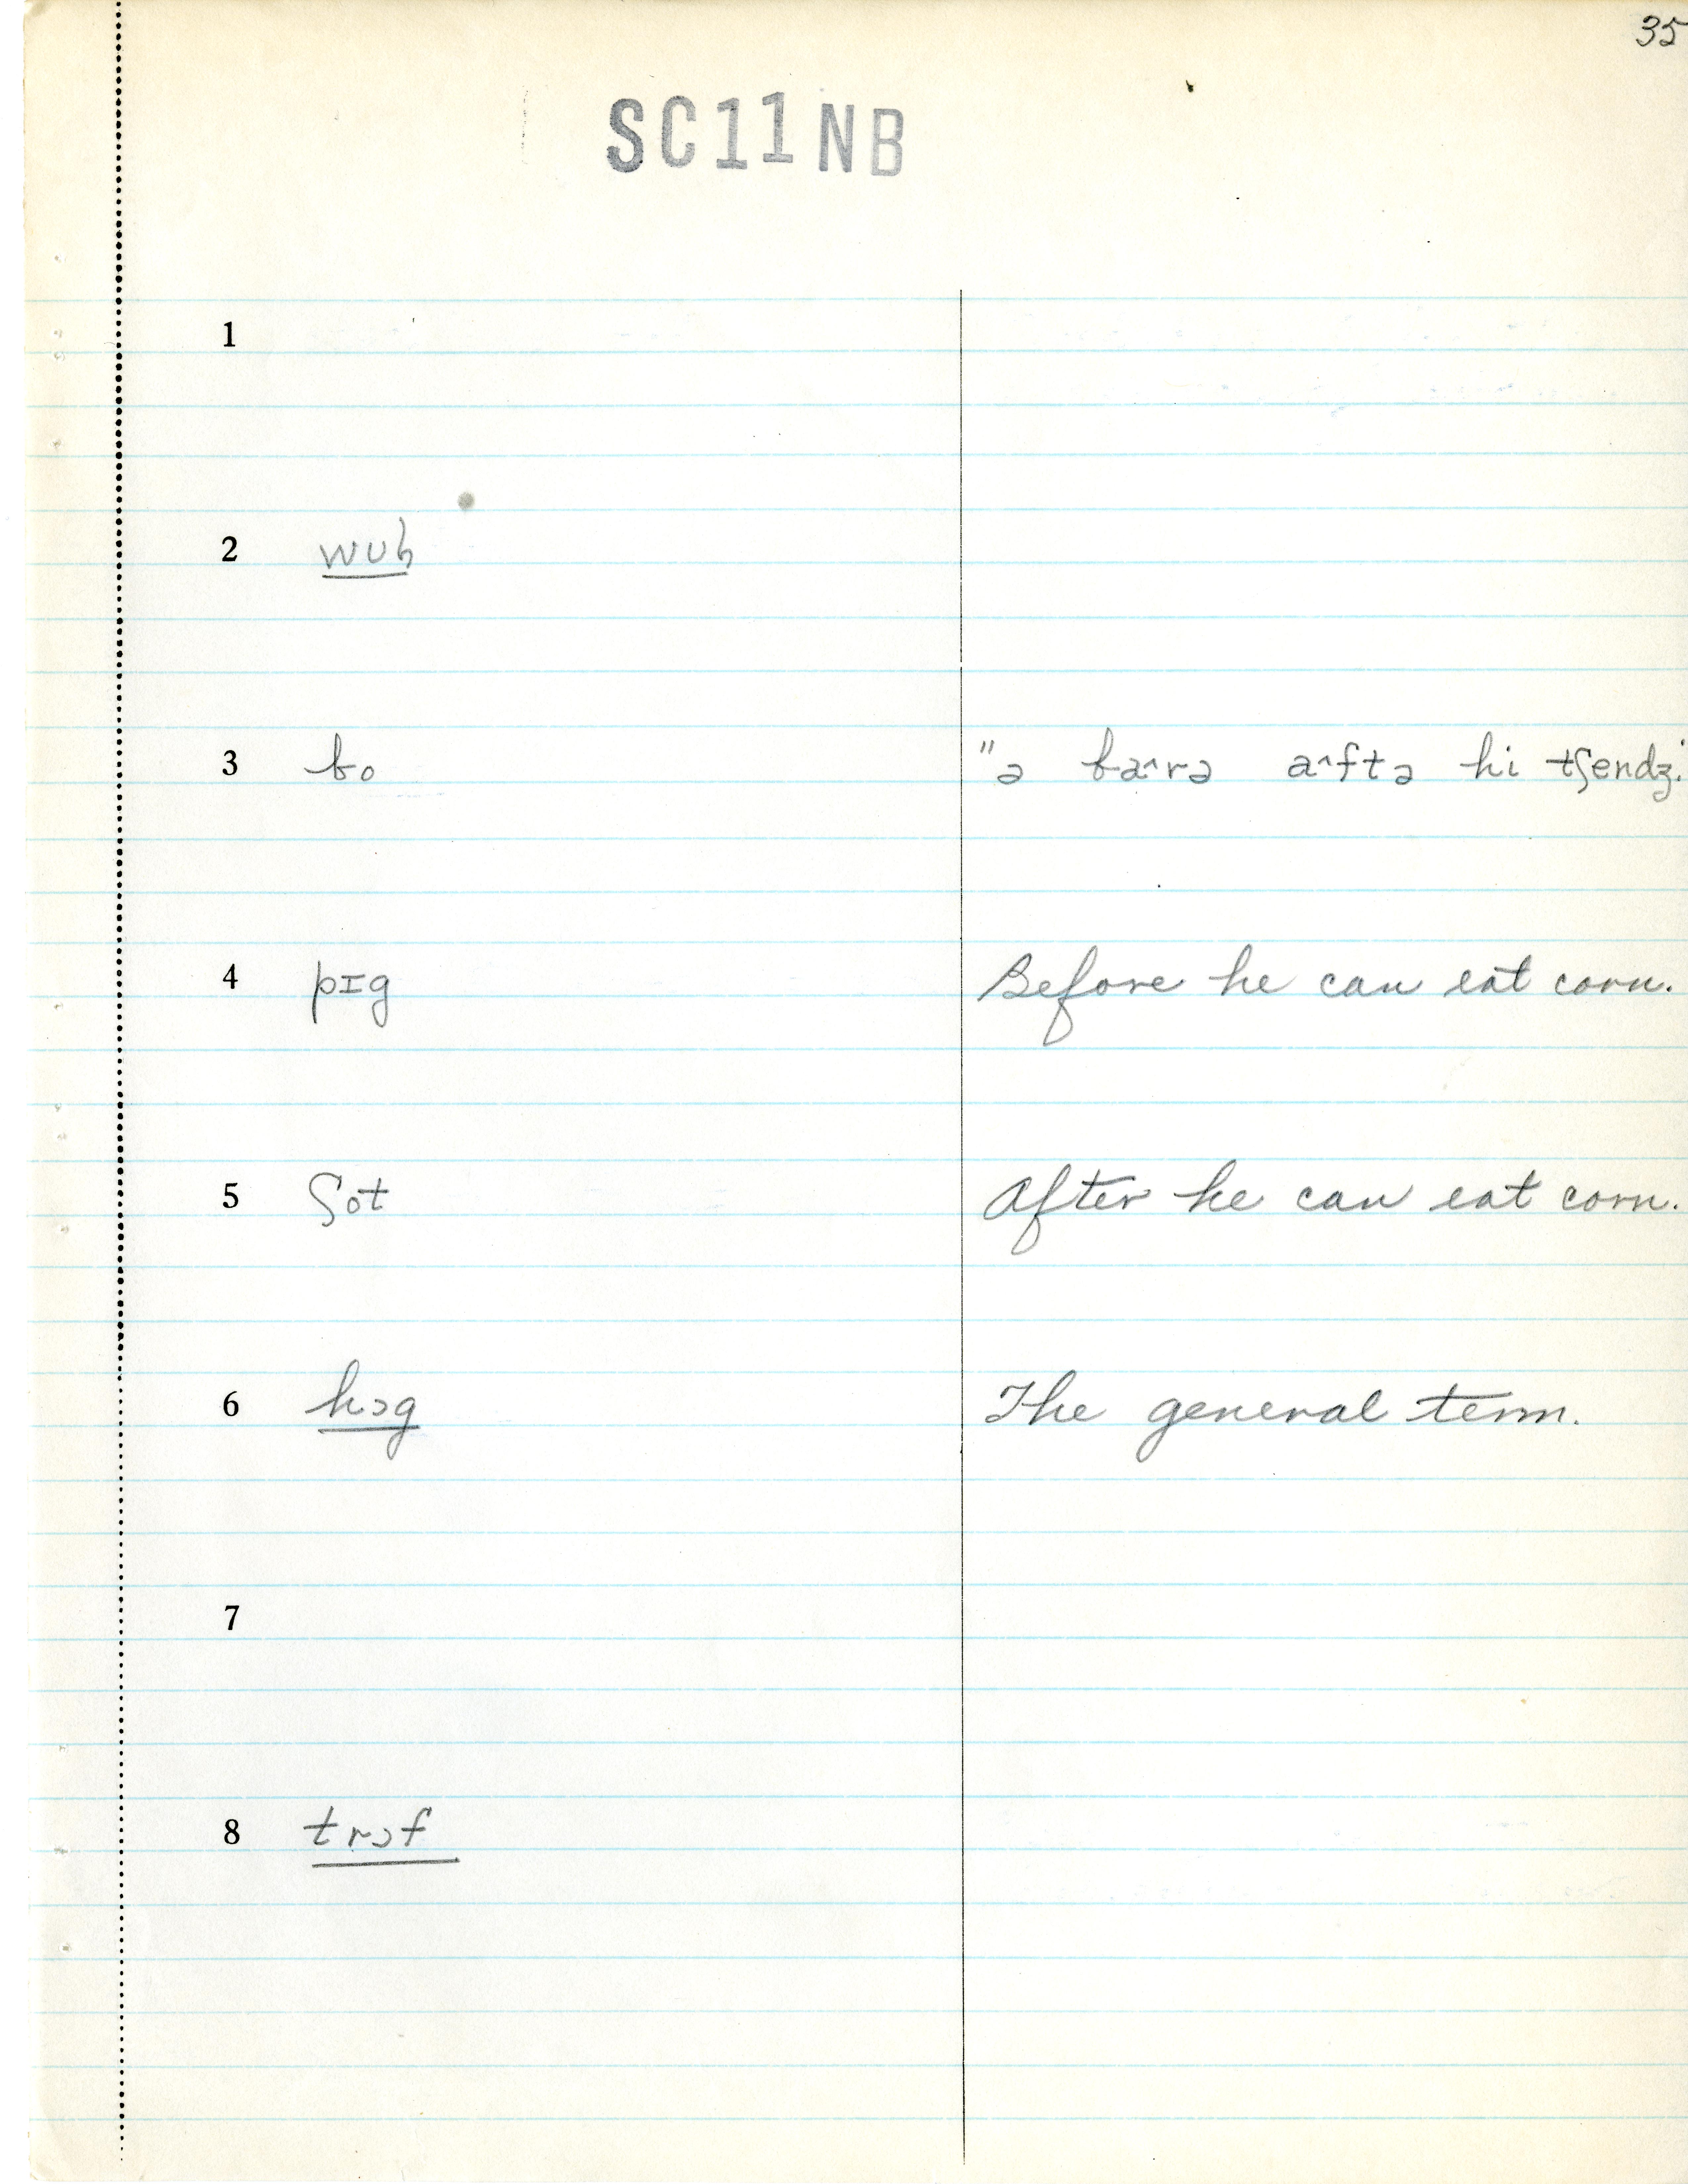 35
SC11NB
1
2 wuɦ
3 bo "ə baˆrə aˆftə hi tʃendʒ."
4 pɪg Before he can eat corn.
5 ʃot After he can eat corn.
6 hɔg The general term.
7
8 trɔf